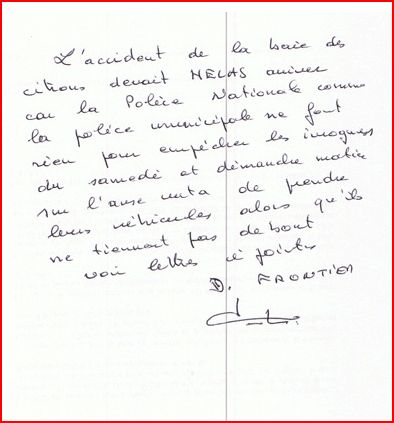 L'accident de la baie des
citrons devait HELAS arriver
car la Police Nationale comme
la police municipale ne font
rien pour empêcher les ivrognes
du samedi et dimanche matin
sur l'anse vata de prendre
leurs véhicules alors qu'ils
ne tiennent pas debout
voir lettres ci jointes
D. FRONTIER